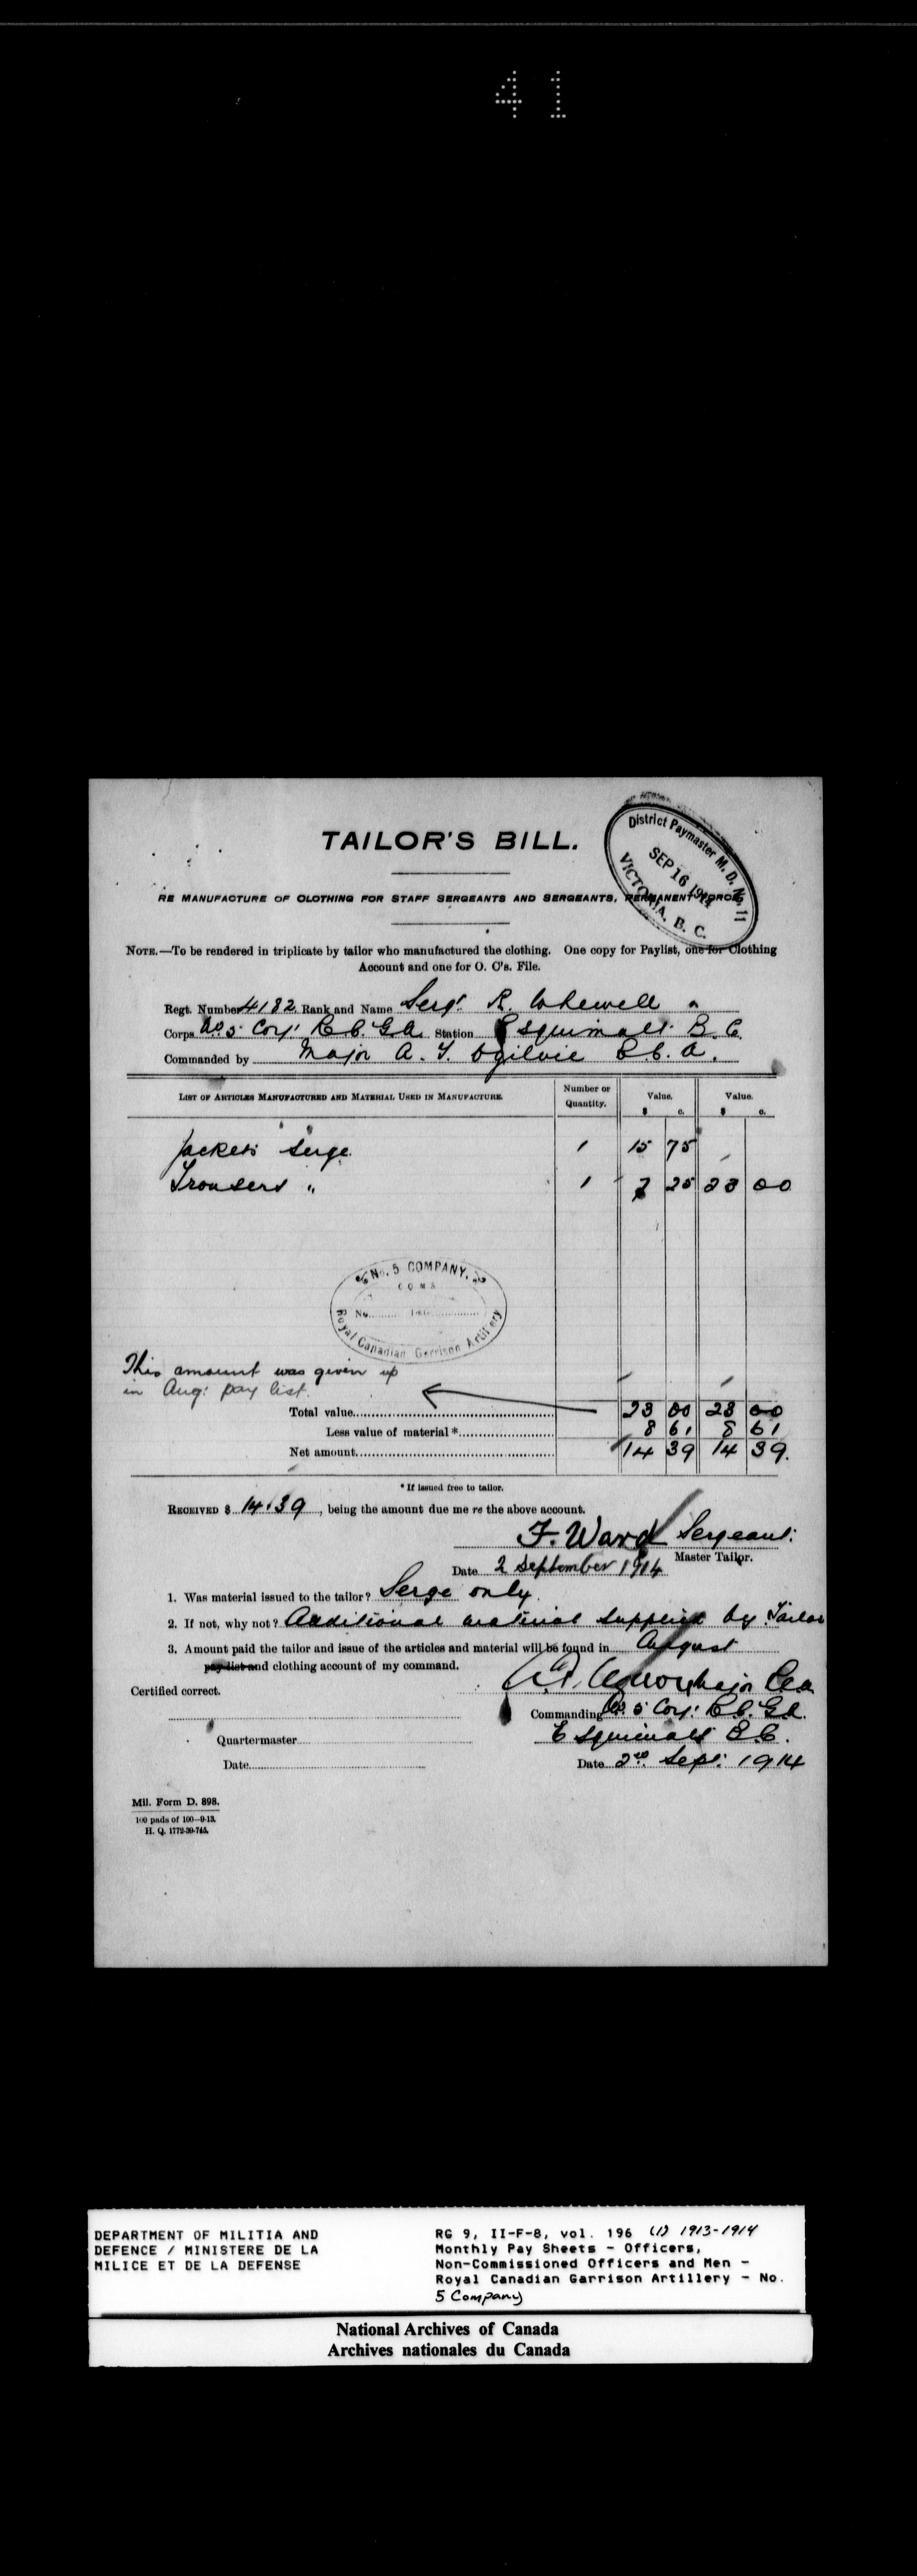 41
TAILOR'S BILL.
District Paymaster M. D. No. 11
SEP 16 1914
VICTORIA, B. C.
RE MANUFACTURE OF CLOTHING FOR STAFF SERGEANTS AND SERGEANTS, PERMANENT FORCE
NOTE.—To be rendered in triplicate by tailor who manufactured the clothing. One copy for Paylist, one for Clothing
Account and one for O. C's. File.
Regt. Number 4182 Rank and Name Sergt. R. Whewell
Corps No 5 Coy: R.C.G.A. Station Esquimalt B.C.
Commanded by Major A. T. Ogilvie R.C.A.
LIST OF ARTICLES MANUFACTURED AND MATERIAL USED IN MANUFACTURE. Number or Quantity. Value. Value.
$ c. $ c.
Jackets Serge 1 15 75
Trousers " 1 7 25 23 00
No. 5 COMPANY,
No. Date
Royal Canadian Garrison Artillery
This amount was given up
in Aug: pay list.
Total value 23 00 23 00
Less value of material * 8 61 8 61
Net amount 14 39 14 39.
* If issued free to tailor.
RECEIVED $ 14.39, being the amount due me re the above account.
F. Ward Sergeant:
Master Tailor.
Date 2 September 1914
1. Was material issued to the tailor? Serge only.
2. If not, why not? Additional material supplied by Tailor
3. Amount paid the tailor and issue of the articles and material will be found in August
pay-list and clothing account of my command.
Certified correct. Major
Commanding No. 5 Coy: R.C.G.A.
Quartermaster Esquimalt B.C.
Date Date 2nd Sept: 1914
Mil. Form D. 898.
100 pads of 100—9-13.
H. Q. 1772-39-745.
DEPARTMENT OF MILITIA AND
DEFENCE / MINISTERE DE LA
MILICE ET DE LA DEFENSE
RG 9, II-F-8, vol. 196 (1) 1913-1914
Monthly Pay Sheets - Officers,
Non-Commissioned Officers and Men -
Royal Canadian Garrison Artillery - No.
5 Company
National Archives of Canada
Archives nationales du Canada